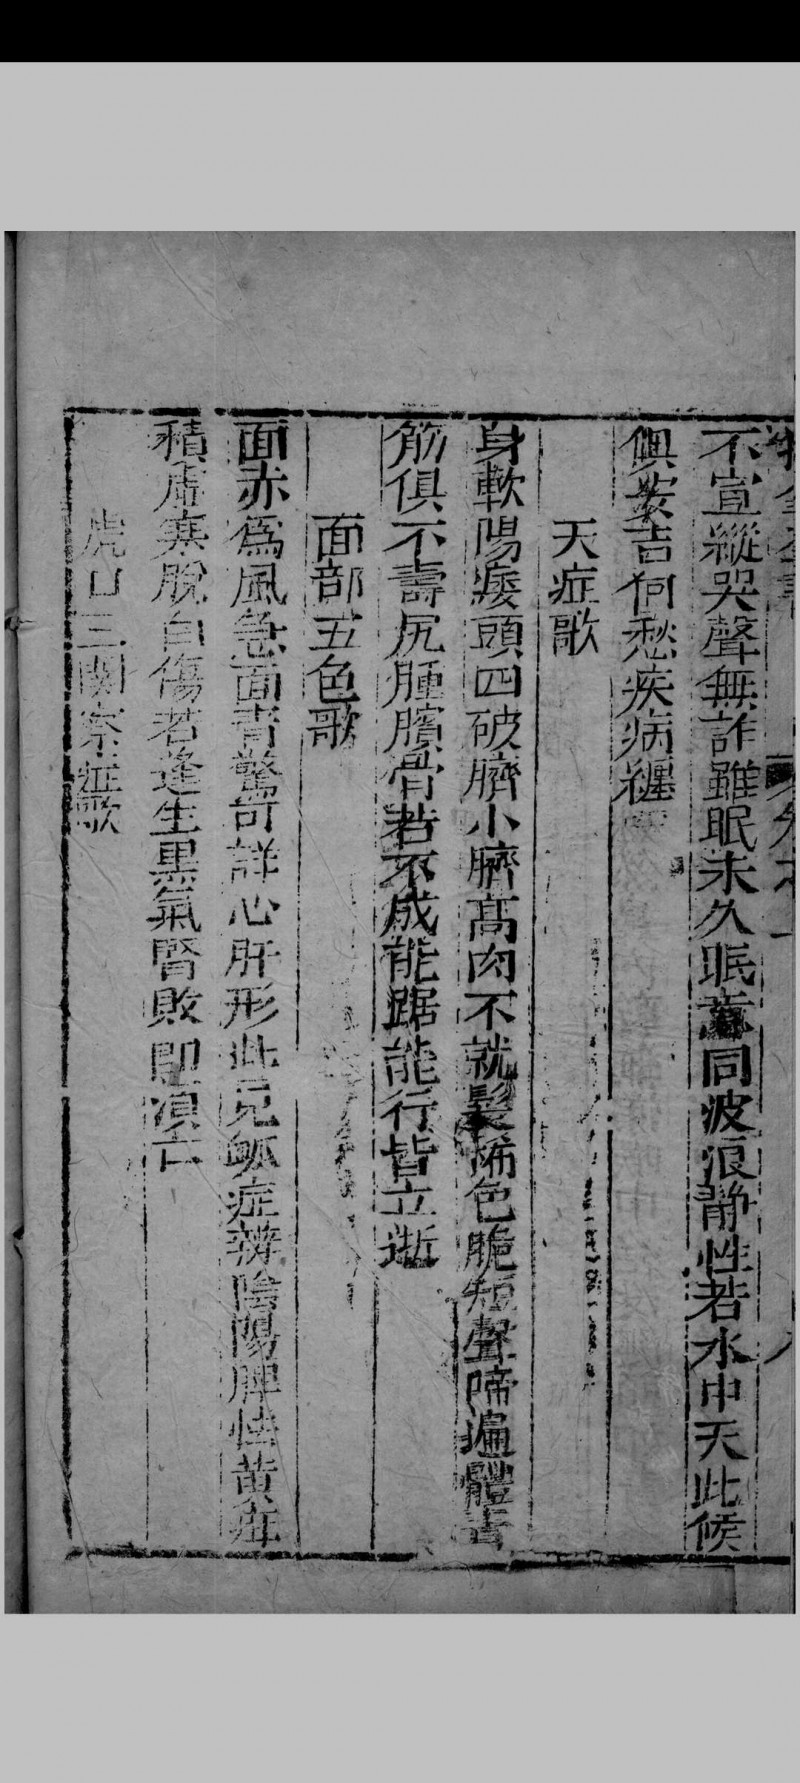 不宣縱哭聲無詐雖眠未久眠意同波浪靜性若水中天此候
俱安吉何愁疾病纏
天症歌
身軟陽痿頭四破臍小臍高肉不就髮稀色脆短聲啼遍體青
筋俱不壽尻腫臏骨若不成能踞能行皆立逝
面部五色歌
面赤為風急面青驚可詳心肝形此見症辨陰陽脾怯黃疳
積虛寒脫白傷若逢生黑氣腎敗即須亡
虎口三關察症歌